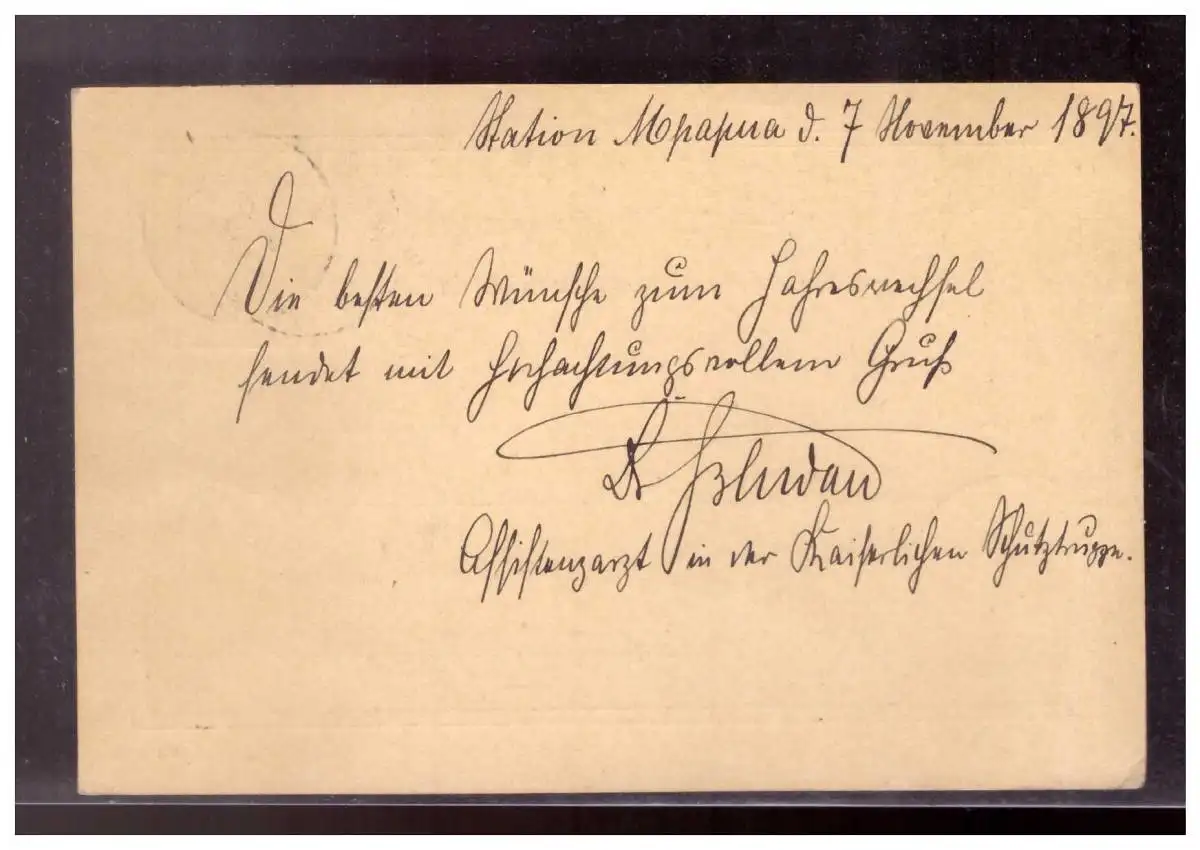 Station Mpapua d. 7 November 1897.
Die besten Wünsche zum Jahreswechsel
sendet mit hochachtungsvollem Gruß
Dr
Assistenzarzt in der Kaiserlichen Schutztruppe.